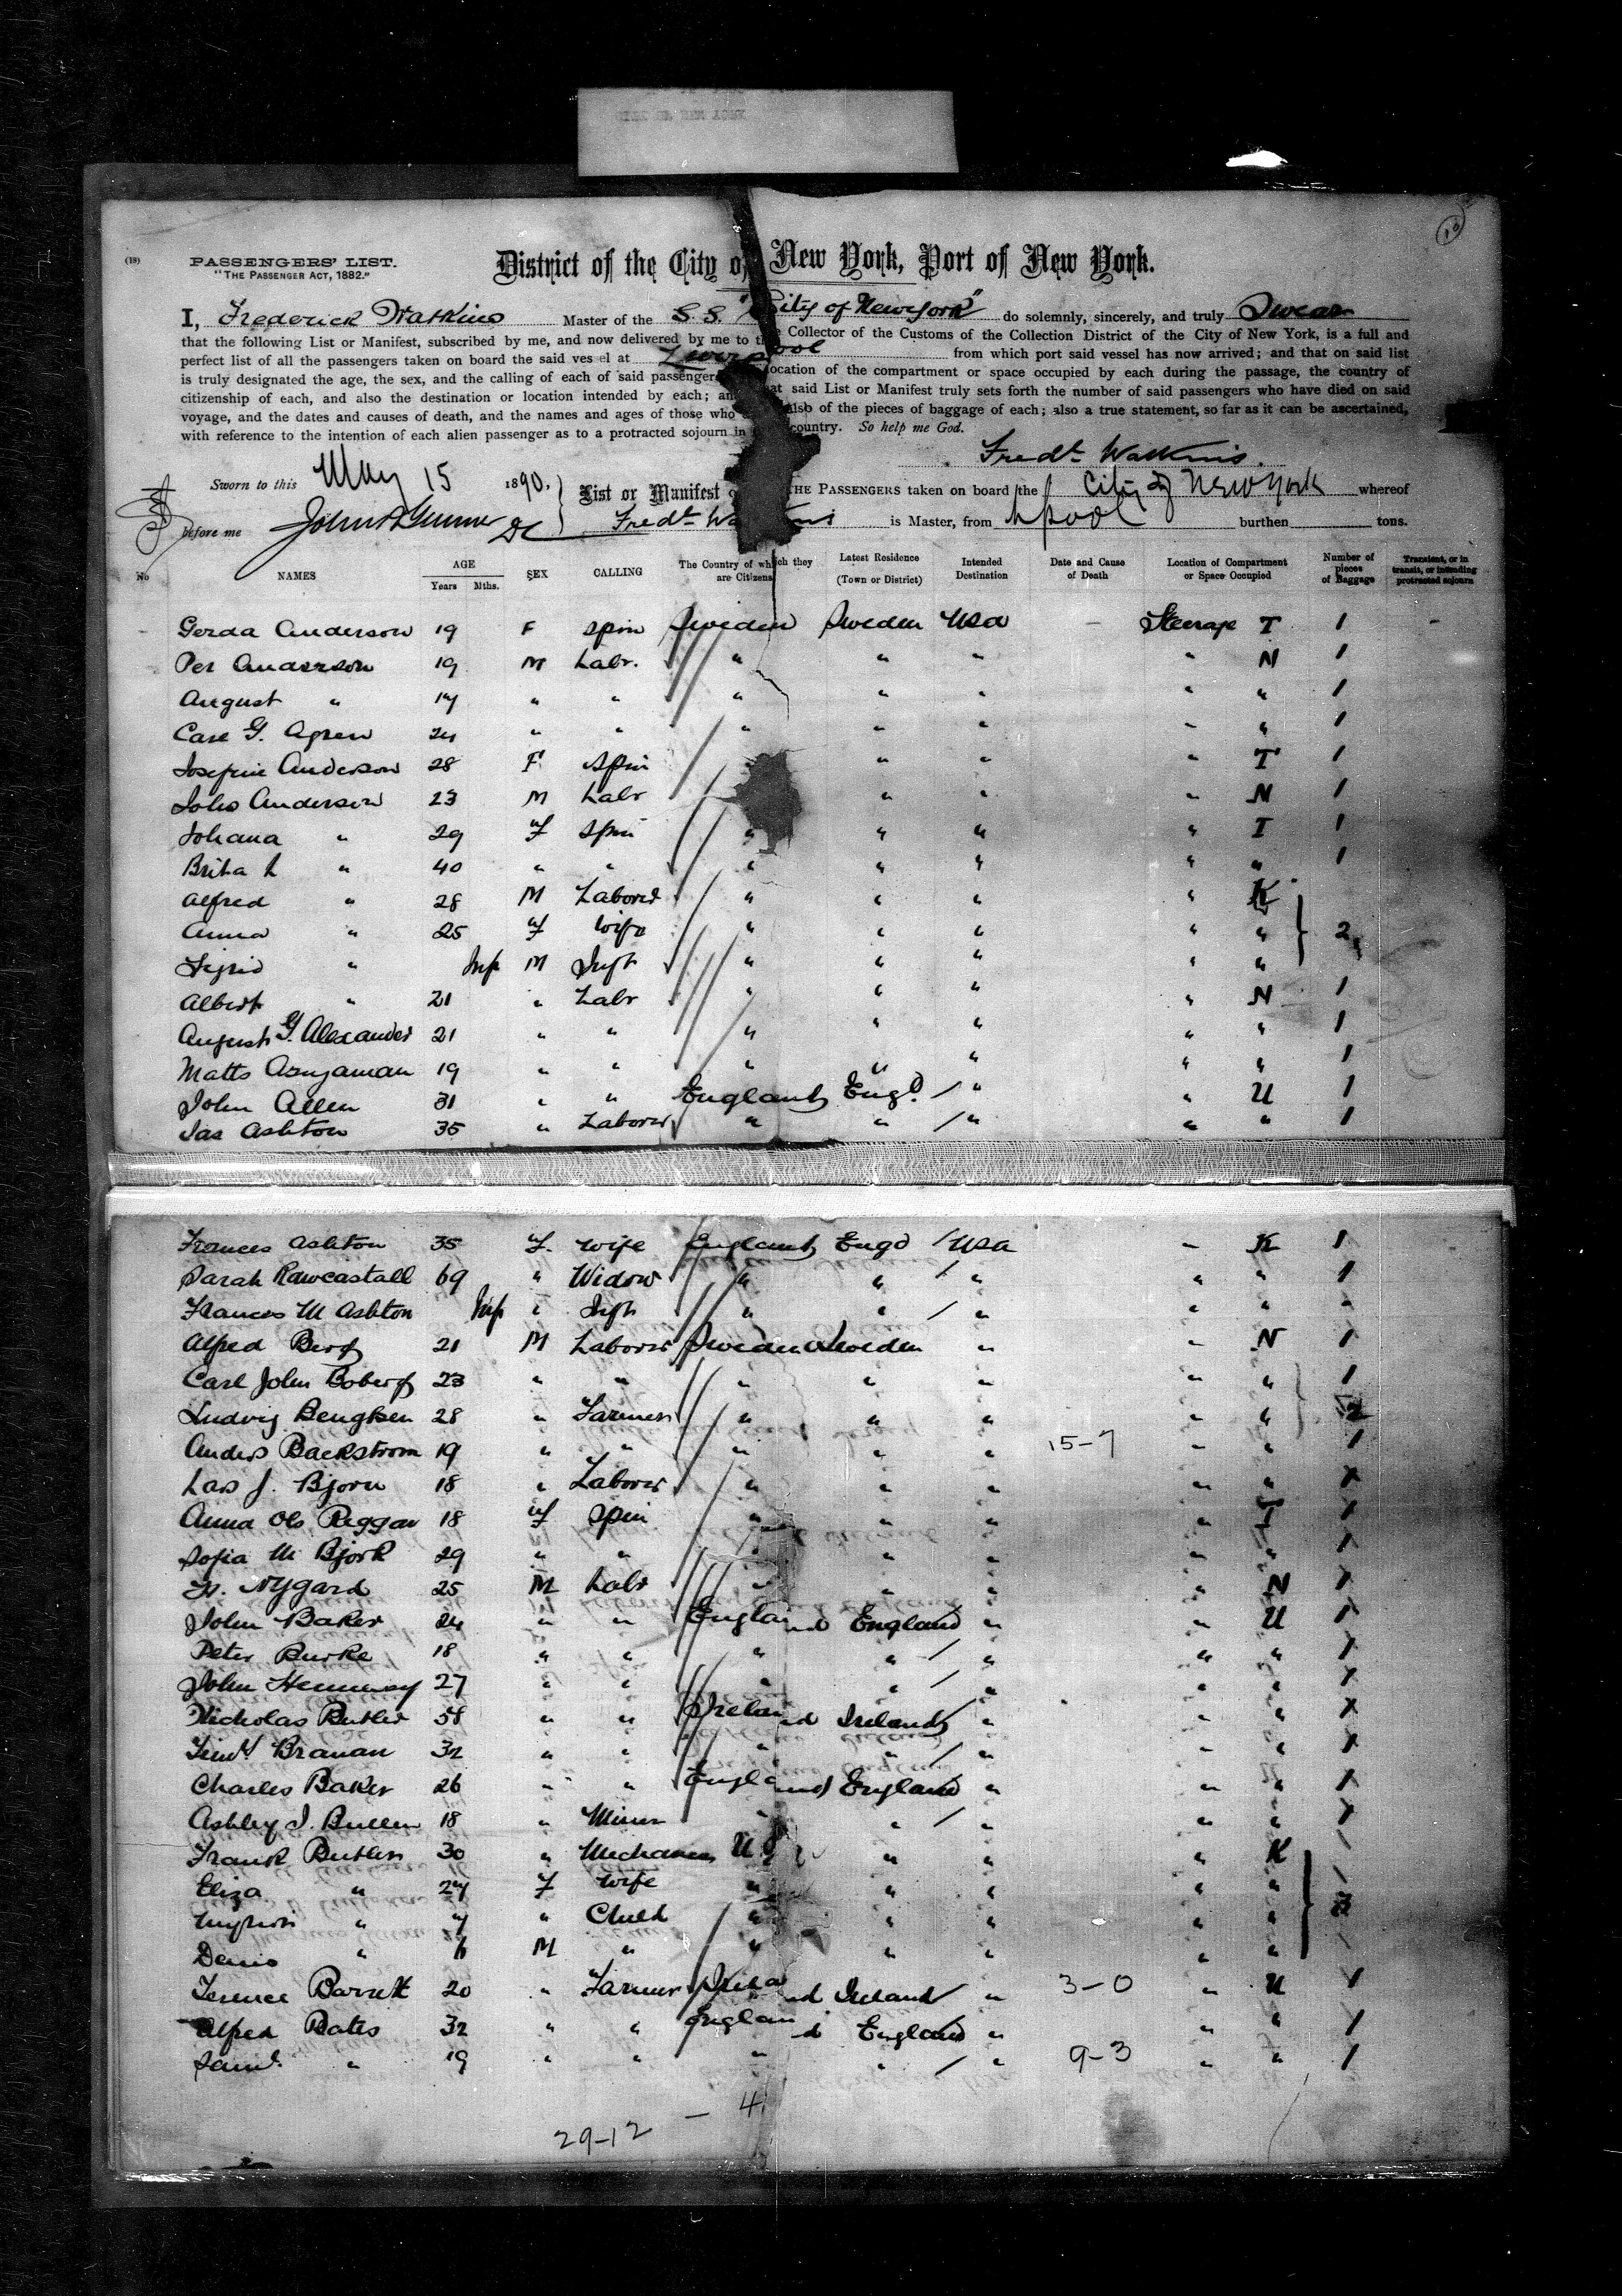 (18)
PASSENGERS' LIST.
"THE PASSENGER ACT, 1882."
District of the City of New York, Port of New York.
I, Frederick Watkins Master of the S.S. "City of New York" do solemnly, sincerely, and truly Swear
that the following List or Manifest, subscribed by me, and now delivered by me to the Collector of the Customs of the Collection District of the City of New York, is a full and
perfect list of all the passengers taken on board the said ves el at Liverpool from which port said vessel has now arrived; and that on said list
is truly designated the age, the sex, and the calling of each of said passengers location of the compartment or space occupied by each during the passage, the country of
citizenship of each, and also the destination or location intended by each; and at said List or Manifest truly sets forth the number of said passengers who have died on said
voyage, and the dates and causes of death, and the names and ages of those who also of the pieces of baggage of each; also a true statement, so far as it can be ascertained,
with reference to the intention of each alien passenger as to a protracted sojourn in country. So help me God.
Fredk Watkins.
Sworn to this May 15 1890.
List or Manifest THE PASSENGERS taken on board the City of New York whereof
before me Fredk Watkins is Master, from Lpool burthen tons.
No NAMES AGE Years Mths. SEX CALLING The Country of which they are Citizens Latest Residence (Town or District) Intended Destination Date and Cause of Death Location of Compartment or Space Occupied Number of pieces of Baggage Transient, or in transit, or intending protracted sojourn
Gerda Anderson 19 F spin Sweden Sweden USA - Steerage T 1 -
Per Anderson 19 M Labr. " " " " N 1
August " 17 " " " " " " " 1
Carl G. Agren 24 " " " " " " " 1
Josefine Anderson 28 F spin " " " T 1
Johs Anderson 23 M Labr " " " N 1
Johana " 29 F spin " " " " T 1
Brita L " 40 " " " " " " " 1
Alfred " 28 M Laborer " " " " K
Anna " 25 F Wife " " " " " 2
Sigrid " Inf M Inft " " " " "
Albert " 21 " Labr " " " " N 1
August G. Alexander 21 " " " " " " " 1
Matts 19 " " " " " " " 1
John Allen 31 " " England Engd. " " U 1
Jas Ashton 35 " Laborer " " " " " 1
Frances Ashton 35 F. Wife England Engd USA - K 1
Sarah Rawcastall 69 " Widow " " " " " 1
Frances M Ashton Inf " Inft " " " " " "
Alfred Berg 21 M Laborer Sweden Sweden " - N 1
Carl John Boberg 23 " " " " " " " 1
Ludvig Bengtsen 28 " Farmer " " " " 2
Anders Backstrom 19 " " " " " 15-7 " " 1
Lars J. Bjorn 18 " Laborer " " " " " 1
Anna Ols 18 F Spin " " " " T 1
Sofia M Bjork 29 " " " " " " 1
Nygard 25 M Labr " " " " N 1
John Baker 24 " " England England " " U 1
Peter Burke 18 " " " " " " " 1
John 27 " " " " " " " 1
Nicholas Butler 58 " " Ireland Ireland " " " 1
Timy Branan 32 " " " " " " " 1
Charles Baker 26 " " England England " " " 1
Ashley J. Bullen 18 " Miner " " " " " 1
Frank Butler 30 " Mechanic U S " " " K
Eliza " 27 F Wife " " " " "
" 7 " Child " " " " " 3
Denis " 6 M " " " " " "
Terence Barrett 20 " Farmer Ireland Ireland " 3-0 " U 1
Alfred Bates 32 " " England England " " " 1
Saml. " 19 " " " " " 9-3 " " 1
29-12 - 4